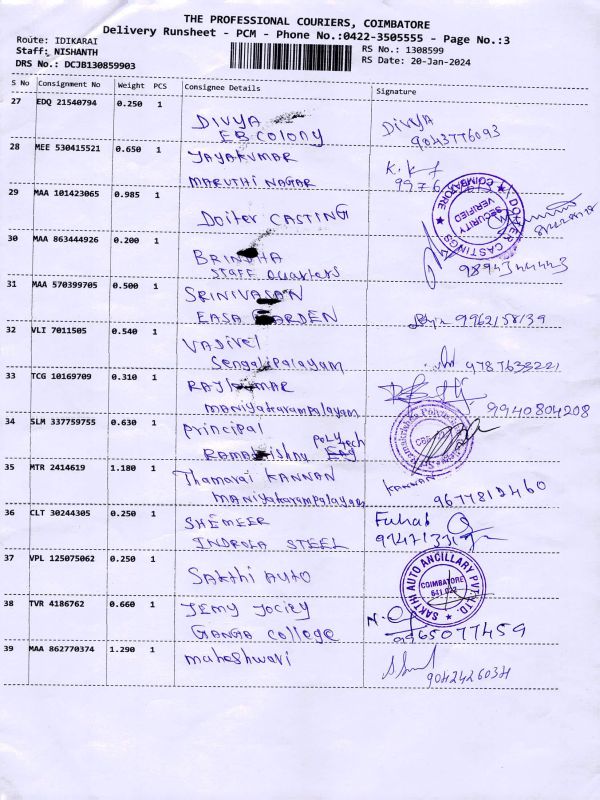 THE PROFESSIONAL COURIERS, COIMBATORE
Delivery Runsheet - PCM - Phone No.:0422-3505555 - Page No.:3
Route: IDIKARAI
Staff: NISHANTH
DRS No.: DCJB130859903
RS No.: 1308599
RS Date: 20-Jan-2024
S No Consignment No Weight PCS Consignee Details Signature
27 EDQ 21540794 0.250 1
DIVYA
EB COLONY
DIVYA
9043776093
28 MEE 530415521 0.650 1
JAYAKUMAR
MARUTHI NAGAR
29 MAA 101423065 0.985 1
Doiter CASTING
DOITER CASTINGS
SECURITY
VERIFIED
COIMBATORE
30 MAA 863444926 0.200 1
BRINDHA
STAFF Quarters
9894344443
31 MAA 570399705 0.500 1
SRINIVASAN
EASA GARDEN
9962158139
32 VLI 7011505 0.540 1
VADIVEL
Sengalipalayam
9787638221
33 TCG 10169709 0.310 1
RAJKUMAR
maniyakarampalayam
9940804208
34 SLM 337759755 0.630 1
Principal
Polytech
35 MTR 2414619 1.180 1
Thamarai KANNAN
MANIYAKARAMPALAYAM
KANNAN
9677812460
36 CLT 30244305 0.250 1
SHEMEER
STEEL
Fahad
37 VPL 125075062 0.250 1
SAKTHI AUTO
SAKTHI AUTO ANCILLARY PVT LTD
COIMBATORE
38 TVR 4186762 0.660 1
JEMY
GANGA College
9965077459
39 MAA 862770374 1.290 1
maheshwari
9042426034